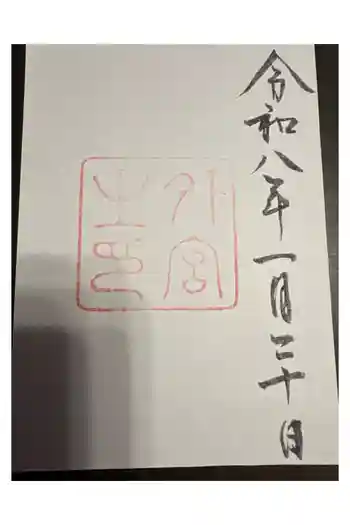 令和八年一月二十日
外宮
之印